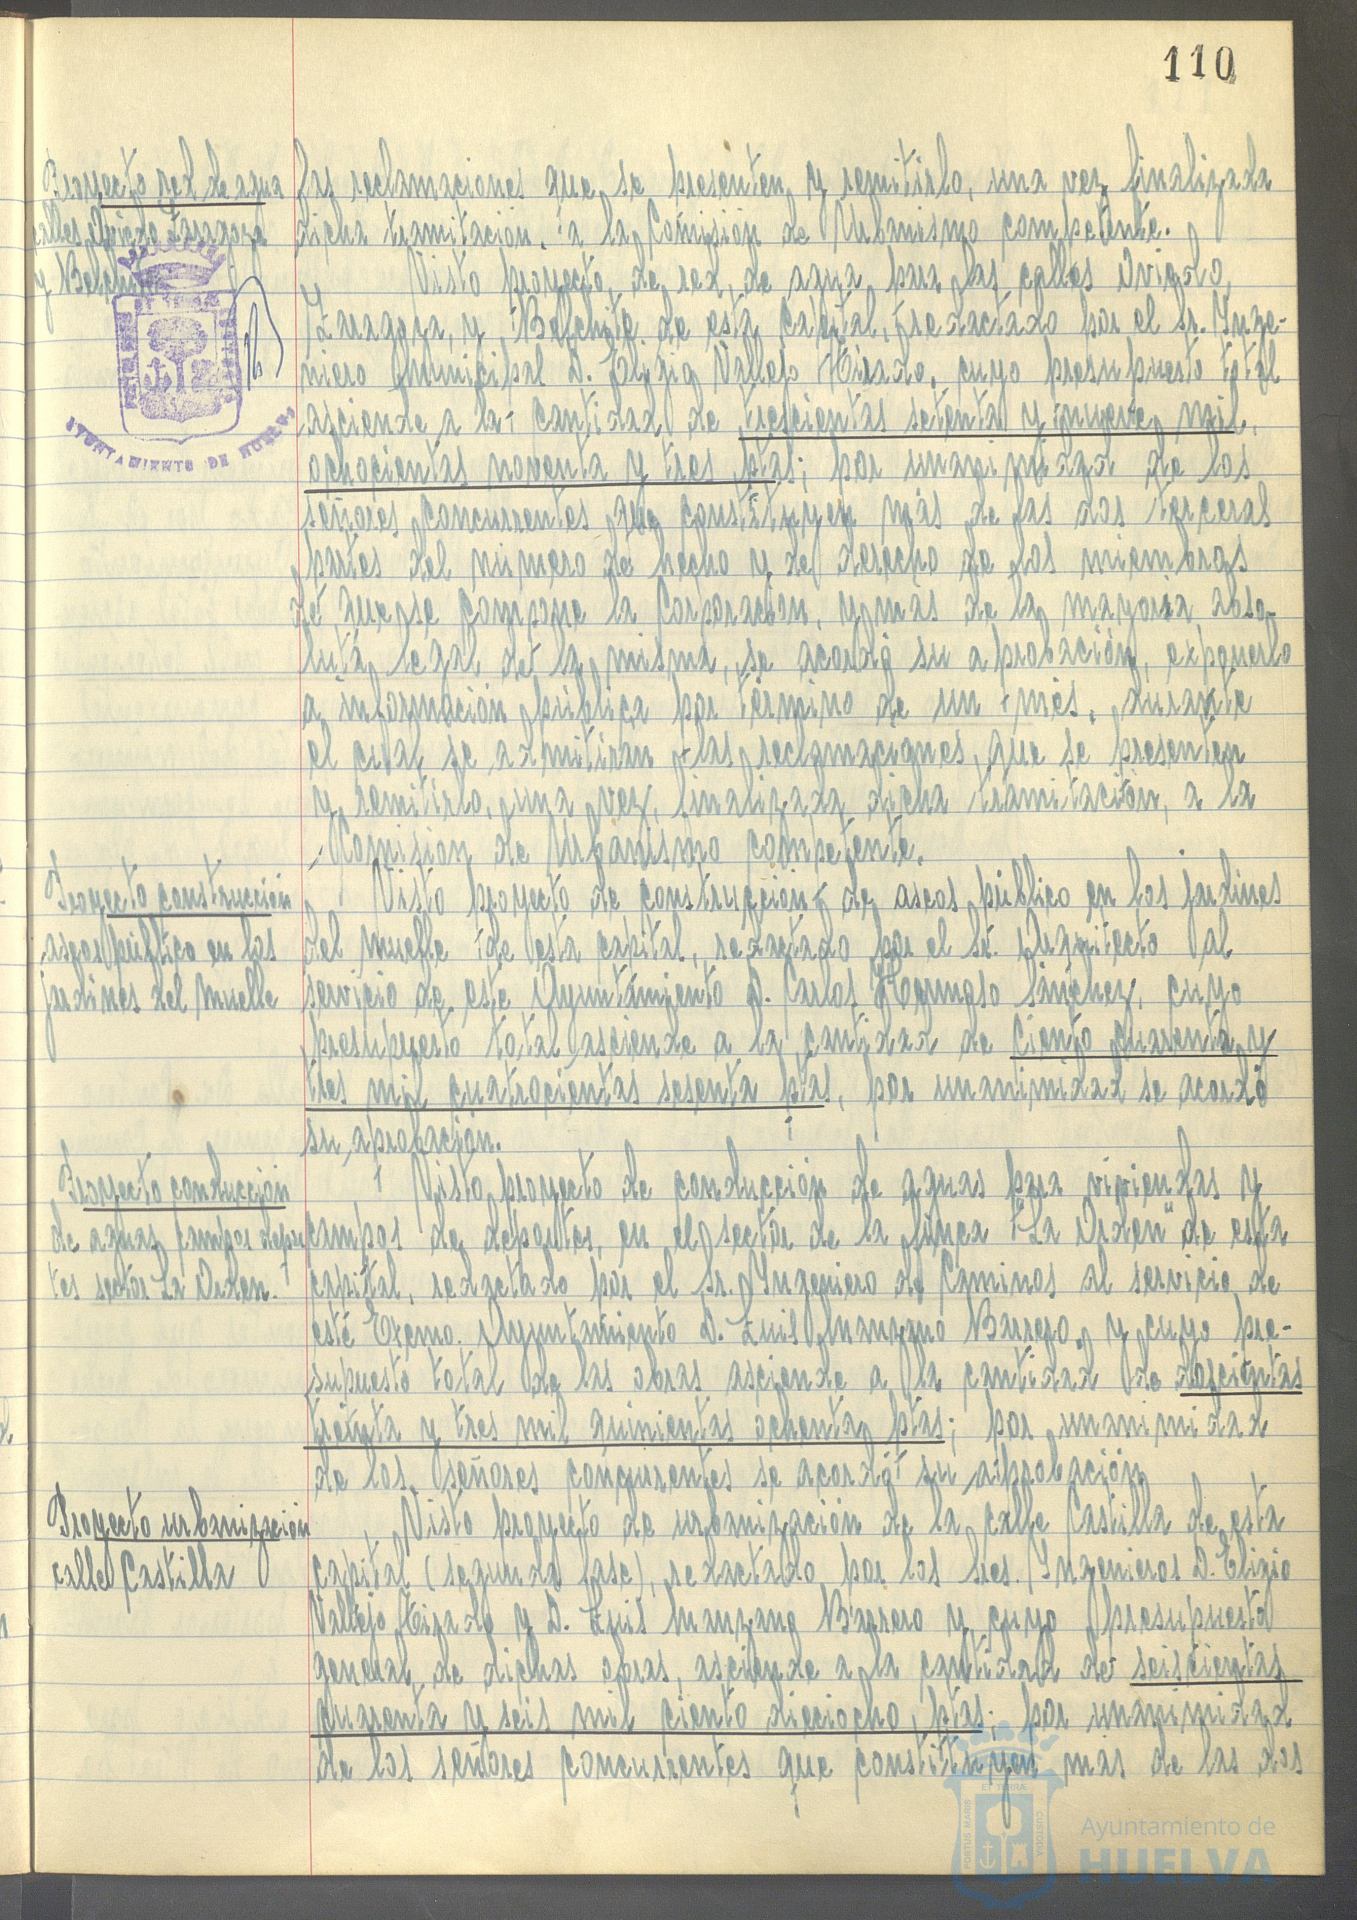 110
Proyecto red de agua
calles Oviedo Zaragoza
y Belchite
AYUNTAMIENTO DE HUELVA
las reclamaciones que se presenten y remitirlo, una vez finalizada
dicha tramitación, a la Comisión de Urbanismo competente.
Visto proyecto, de red, de agua para las calles Oviedo,
Zaragoza, y Belchite de esta capital, redactado por el Sr. Inge-
niero Municipal D. Eligio Vallejo Tirado, cuyo presupuesto total
asciende a la cantidad de trescientas setenta y nueve mil,
ochocientas noventa y tres ptas; por unanimidad de los
señores concurrentes que constituyen más de las dos terceras
partes del número de hecho y de derecho de los miembros
de que se compone la Corporación, y más de la mayoría abso-
luta legal de la misma, se acordó su aprobación, exponerlo
a información pública por término de un mes, durante
el cual se admitirán las reclamaciones, que se presenten
y remitirlo, una vez, finalizada dicha tramitación, a la
Comisión de Urbanismo competente.
Proyecto construcción
aseos público en los
jardines del Muelle
Visto proyecto de construcción de aseos público en los jardines
del Muelle de esta capital, redactado por el Sr. Arquitecto al
servicio de este Ayuntamiento D. Carlos Hermoso Sánchez, cuyo
presupuesto total asciende a la cantidad de ciento cuarenta y
tres mil cuatrocientas sesenta ptas, por unanimidad se acordó
su aprobación.
Proyecto conducción
de aguas campos depor
tes sector La Orden.
Visto proyecto de conducción de aguas para viviendas y
campos de deportes, en el sector de la finca "La Orden" de esta
capital, redactado por el Sr. Ingeniero de Caminos al servicio de
este Excmo. Ayuntamiento D. Luis Manzano Barrero, y cuyo pre-
supuesto total de las obras asciende a la cantidad de doscientas
treinta y tres mil quinientas ochenta ptas; por unanimidad
de los señores concurrentes se acordó su aprobación.
Proyecto urbanización
calle Castilla
Visto proyecto de urbanización de la calle Castilla de esta
capital (segunda fase), redactado por los Sres. Ingenieros D. Eligio
Vallejo Tirado y D. Luis Manzano Barrero y cuyo presupuesto
general de dichas obras, asciende a la cantidad de seiscientas
cuarenta y seis mil ciento dieciocho ptas; por unanimidad
de los señores concurrentes que constituyen más de las dos
PORTUS MARIS ET TERRAE CUSTODIA
Ayuntamiento de
HUELVA